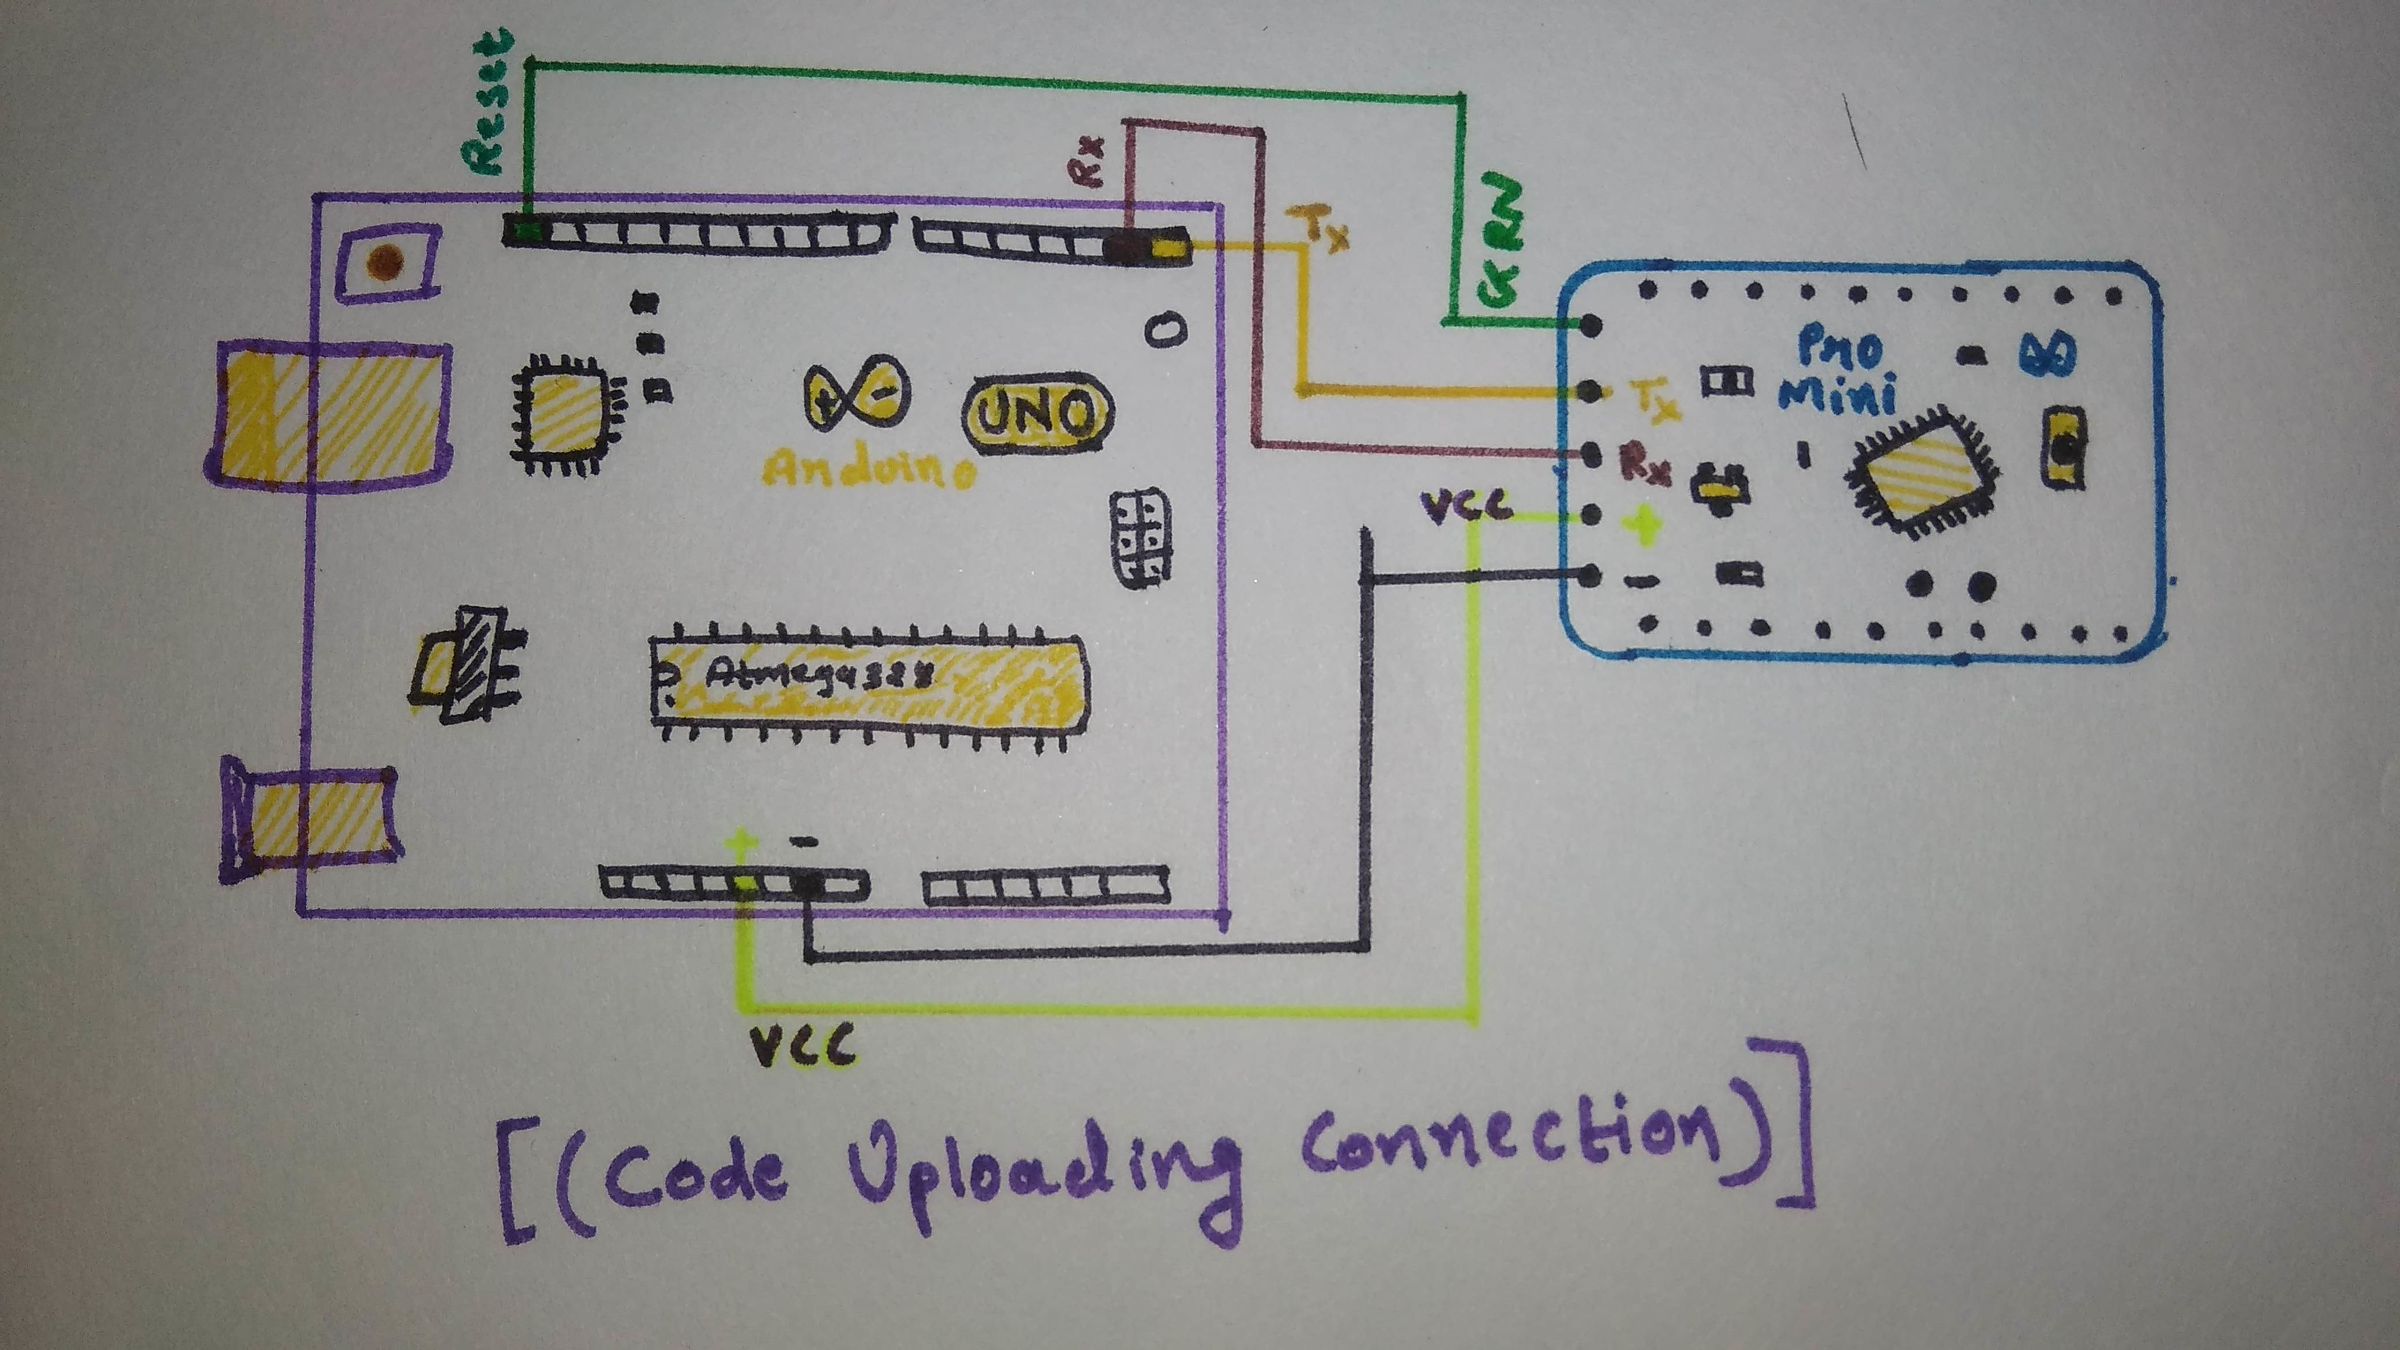 Reset
Rx
Tx
GRN
Pro
Mini
UNO
Arduino
Tx
Rx
VCC
+
-
Atmega328
+ -
VCC
[(Code Uploading Connection)]